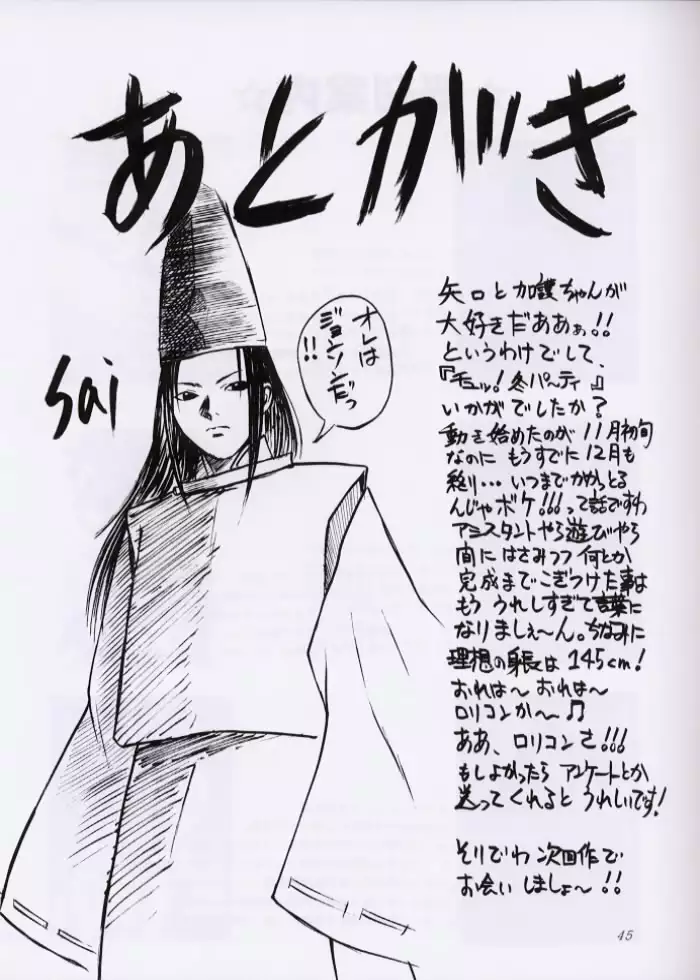 あとがき
sai
オレは
ジョンソンだっ
!!
矢口と加護ちゃんが
大好きだああぁ!!
というわけでして、
『モーッ!冬パーティ』
いかがでしたか?
動き始めたのが11月初旬
なのに もうすでに12月も
終り… いつまでかかっとる
んじゃボケ!!!って話ですわ
アシスタントやら遊びやら
間にはさみつつ何とか
完成までこぎつけた事は
もう うれしすぎて言葉に
なりましぇ〜ん。ちなみに
理想の身長は145cm!
おれは〜おれは〜
ロリコンか〜♫
ああ、ロリコンさ!!!
もしよかったらアンケートとか
送ってくれるとうれしいです!
そりでわ次回作で
お会いしましょ〜!!
45